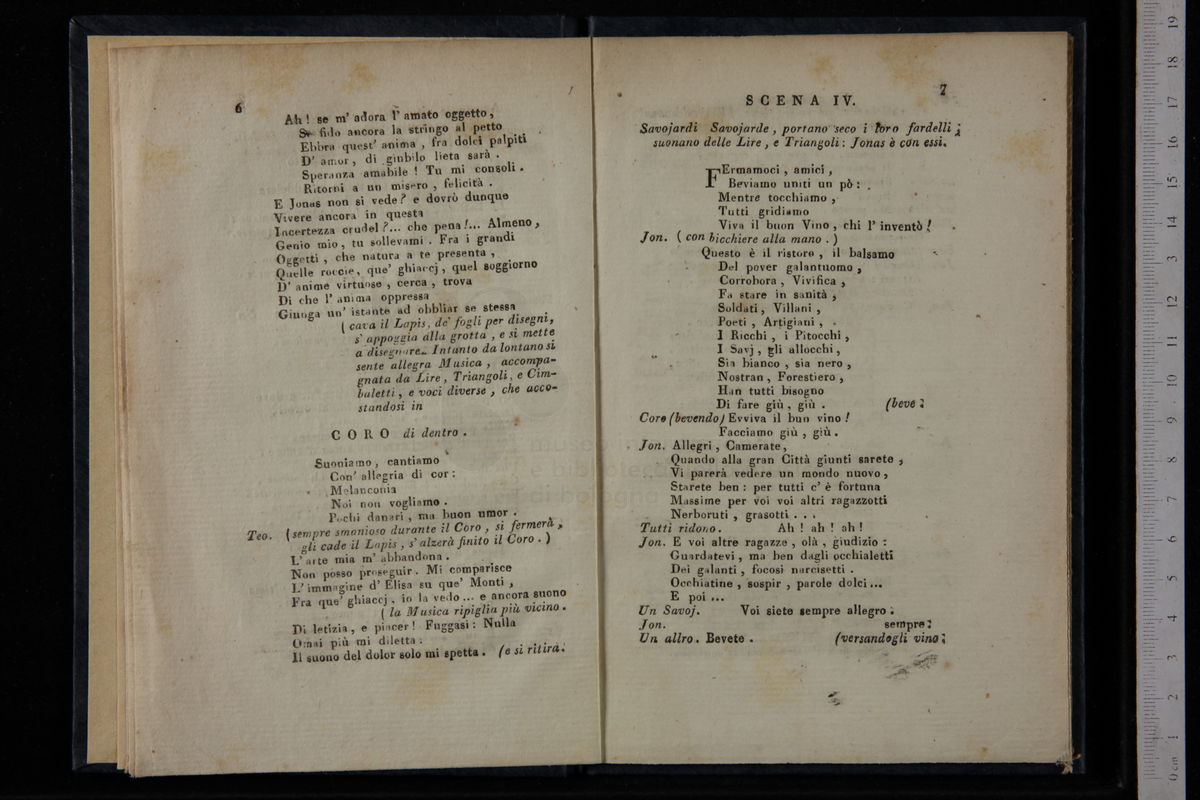 6
Ah! se m' adora l' amato oggetto,
Se fido ancora la stringo al petto
Ebbra quest' anima, fra dolci palpiti
D' amor, di giubilo lieta sarà.
Speranza amabile! Tu mi consoli.
Ritorni a un misero, felicità.
E Jonas non si vede? e dovrò dunque
Vivere ancora in questa
Incertezza crudel?... che pena!... Almeno,
Genio mio, tu sollevami. Fra i grandi
Oggetti, che natura a te presenta,
Quelle roccie, que' ghiaccj, quel soggiorno
D' anime virtuose, cerca, trova
Di che l' anima oppressa
Giunga un' istante ad obbliar se stessa
(cava il Lapis, de' fogli per disegni,
s' appoggia alla grotta, e si mette
a disegnare.. Intanto da lontano si
sente allegra Musica, accompa-
gnata da Lire, Triangoli, e Cim-
baletti, e voci diverse, che acco-
standosi in
CORO di dentro.
Suoniamo, cantiamo
Con' allegria di cor:
Melanconia
Noi non vogliamo.
Pochi danari, ma buon umor.
Teo. (sempre smanioso durante il Coro, si fermerà,
gli cade il Lapis, s' alzerà finito il Coro.)
L' arte mia m' abbandona.
Non posso proseguir. Mi comparisce
L' immagine d' Elisa su que' Monti,
Fra que' ghiaccj, io la vedo... e ancora suono
(la Musica ripiglia più vicino.
Di letizia, e piacer! Fuggasi: Nulla
Omai più mi diletta:
Il suono del dolor solo mi spetta. (e si ritira.
7
SCENA IV.
Savojardi Savojarde, portano seco i loro fardelli;
suonano delle Lire, e Triangoli: Jonas è con essi.
FErmamoci, amici,
Beviamo uniti un pò:
Mentre tocchiamo,
Tutti gridiamo
Viva il buon Vino, chi l' inventò!
Jon. (con bicchiere alla mano.)
Questo è il ristoro, il balsamo
Del pover galantuomo,
Corrobora, Vivifica,
Fa stare in sanità,
Soldati, Villani,
Poeti, Artigiani,
I Ricchi, i Pitocchi,
I Savj, gli allocchi,
Sia bianco, sia nero,
Nostran, Forestiero,
Han tutti bisogno
Di fare giù, giù. (beve;
Coro (bevendo) Evviva il bun vino!
Facciamo giù, giù.
Jon. Allegri, Camerate,
Quando alla gran Città giunti sarete,
Vi parerà vedere un mondo nuovo,
Starete ben: per tutti c' è fortuna
Massime per voi voi altri ragazzotti
Nerboruti, grasotti...
Tutti ridono. Ah! ah! ah!
Jon. E voi altre ragazze, olà, giudizio:
Guardatevi, ma ben dagli occhialetti
Dei galanti, focosi narcisetti.
Occhiatine, sospir, parole dolci...
E poi...
Un Savoj. Voi siete sempre allegro.
Jon. sempre;
Un altro. Bevete. (versandogli vino;